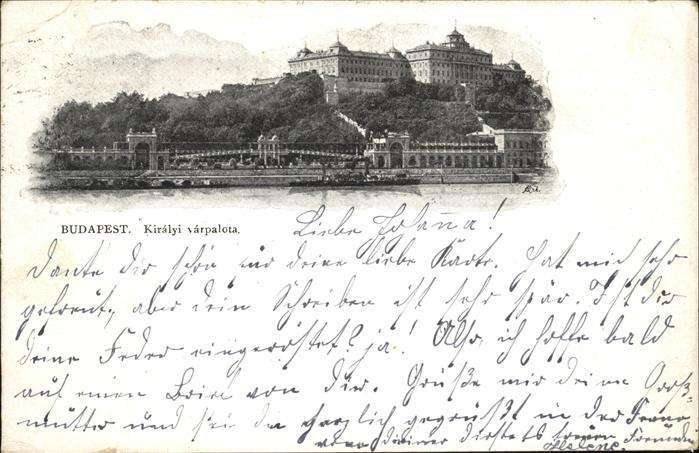 BUDAPEST. Királyi várpalota.
Liebe Johanna!
Danke dir schön für deine liebe Karte. Hat mich sehr
gefreut, aber dein Schreiben ist sehr spär. Ist dir
deine Feder eingeröstet? ja! Also, ich hoffe bald
auf einen Brief von dir. Grüße mir deine
mutter und sei du herzlich gegrüßt in der Ferne
von deiner stets treuen Freundin
Helene.